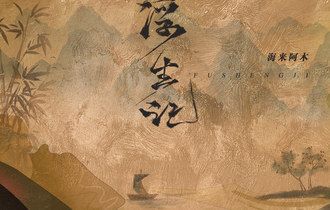 浮生记
海来阿木
FUSHENGJI